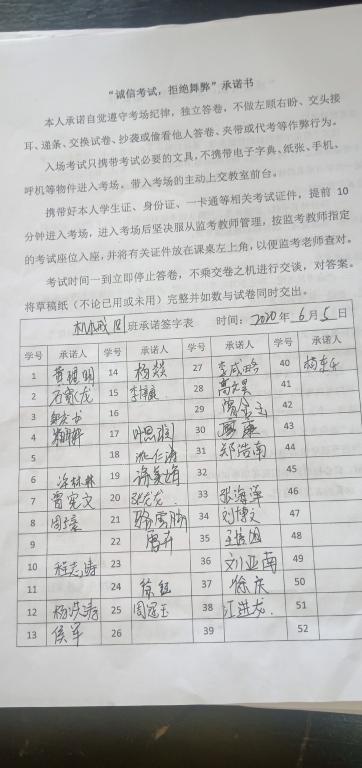 “诚信考试，拒绝舞弊”承诺书
本人承诺自觉遵守考场纪律，独立答卷，不做左顾右盼、交头接
耳、递条、交换试卷、抄袭或偷看他人答卷、夹带或代考等作弊行为。
入场考试只携带考试必要的文具，不携带电子字典、纸张、手机、
呼机等物件进入考场，带入考场的主动上交教室前台。
携带好本人学生证、身份证、一卡通等相关考试证件，提前 10
分钟进入考场，进入考场后坚决服从监考教师管理，按监考教师指定
的考试座位入座，并将有关证件放在课桌左上角，以便监考老师查对。
考试时间一到立即停止答卷，不乘交卷之机进行交谈，对答案。
将草稿纸（不论已用或未用）完整并如数与试卷同时交出。
班承诺签字表 时间：2020年6月5日
学号 承诺人 学号 承诺人 学号 承诺人 学号 承诺人
1 14 27 40
2 15 28 高文昊 41
3 16 29 42
4 17 30 43
5 18 31 郑浩南 44
6 涂林林 19 32 45
7 曾宪文 20 张龙龙 33 张海洋 46
8 周璟 21 34 刘博文 47
9 22 唐卉 35 48
10 程志涛 23 36 刘亚南 49
11 24 37 徐庆 50
12 杨洪涛 25 周冠玉 38 江进龙 51
13 侯军 26 39 52